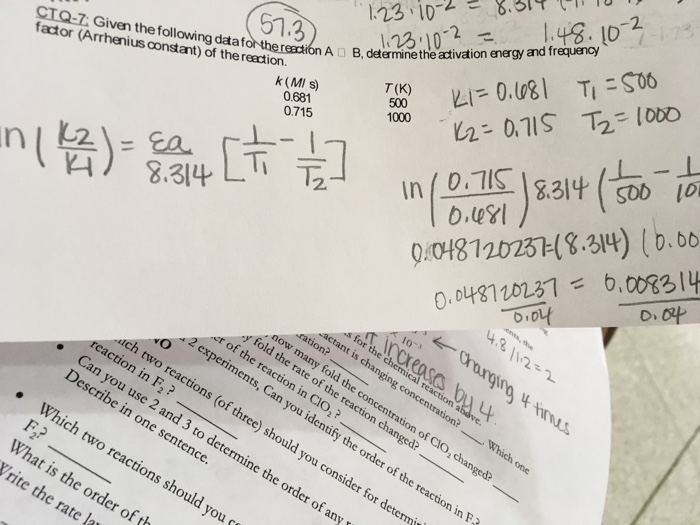 57.3
1.23·10-2 = 8.314
1.23·10-2 = 1.48·10-2
CTQ-7: Given the following data for the reaction A □ B, determine the activation energy and frequency
factor (Arrhenius constant) of the reaction.
k (M/s) T (K)
0.681 500
0.715 1000
K1 = 0.681 T1 = 500
K2 = 0.715 T2 = 1000
ln (K2/K1) = Ea/8.314 [1/T1 - 1/T2]
ln (0.715/0.681) 8.314 (1/500 - 1/10
0.048720237=(8.314) (0.00
0.048720237 = 0.008314
0.04 0.04
4.8/1.2 = 2
10-1 ← changing 4 times
IT increases by 4
s for the chemical reaction above.
actant is changing concentration? Which one
ration?
how many fold the concentration of ClO2 changed?
y fold the rate of the reaction changed?
er of the reaction in ClO2?
2 experiments, Can you identify the order of the reaction in F2?
ich two reactions (of three) should you consider for determin
reaction in F2?
Can you use 2 and 3 to determine the order of any
Describe in one sentence.
Which two reactions should you c
F2?
What is the order of th
Write the rate la